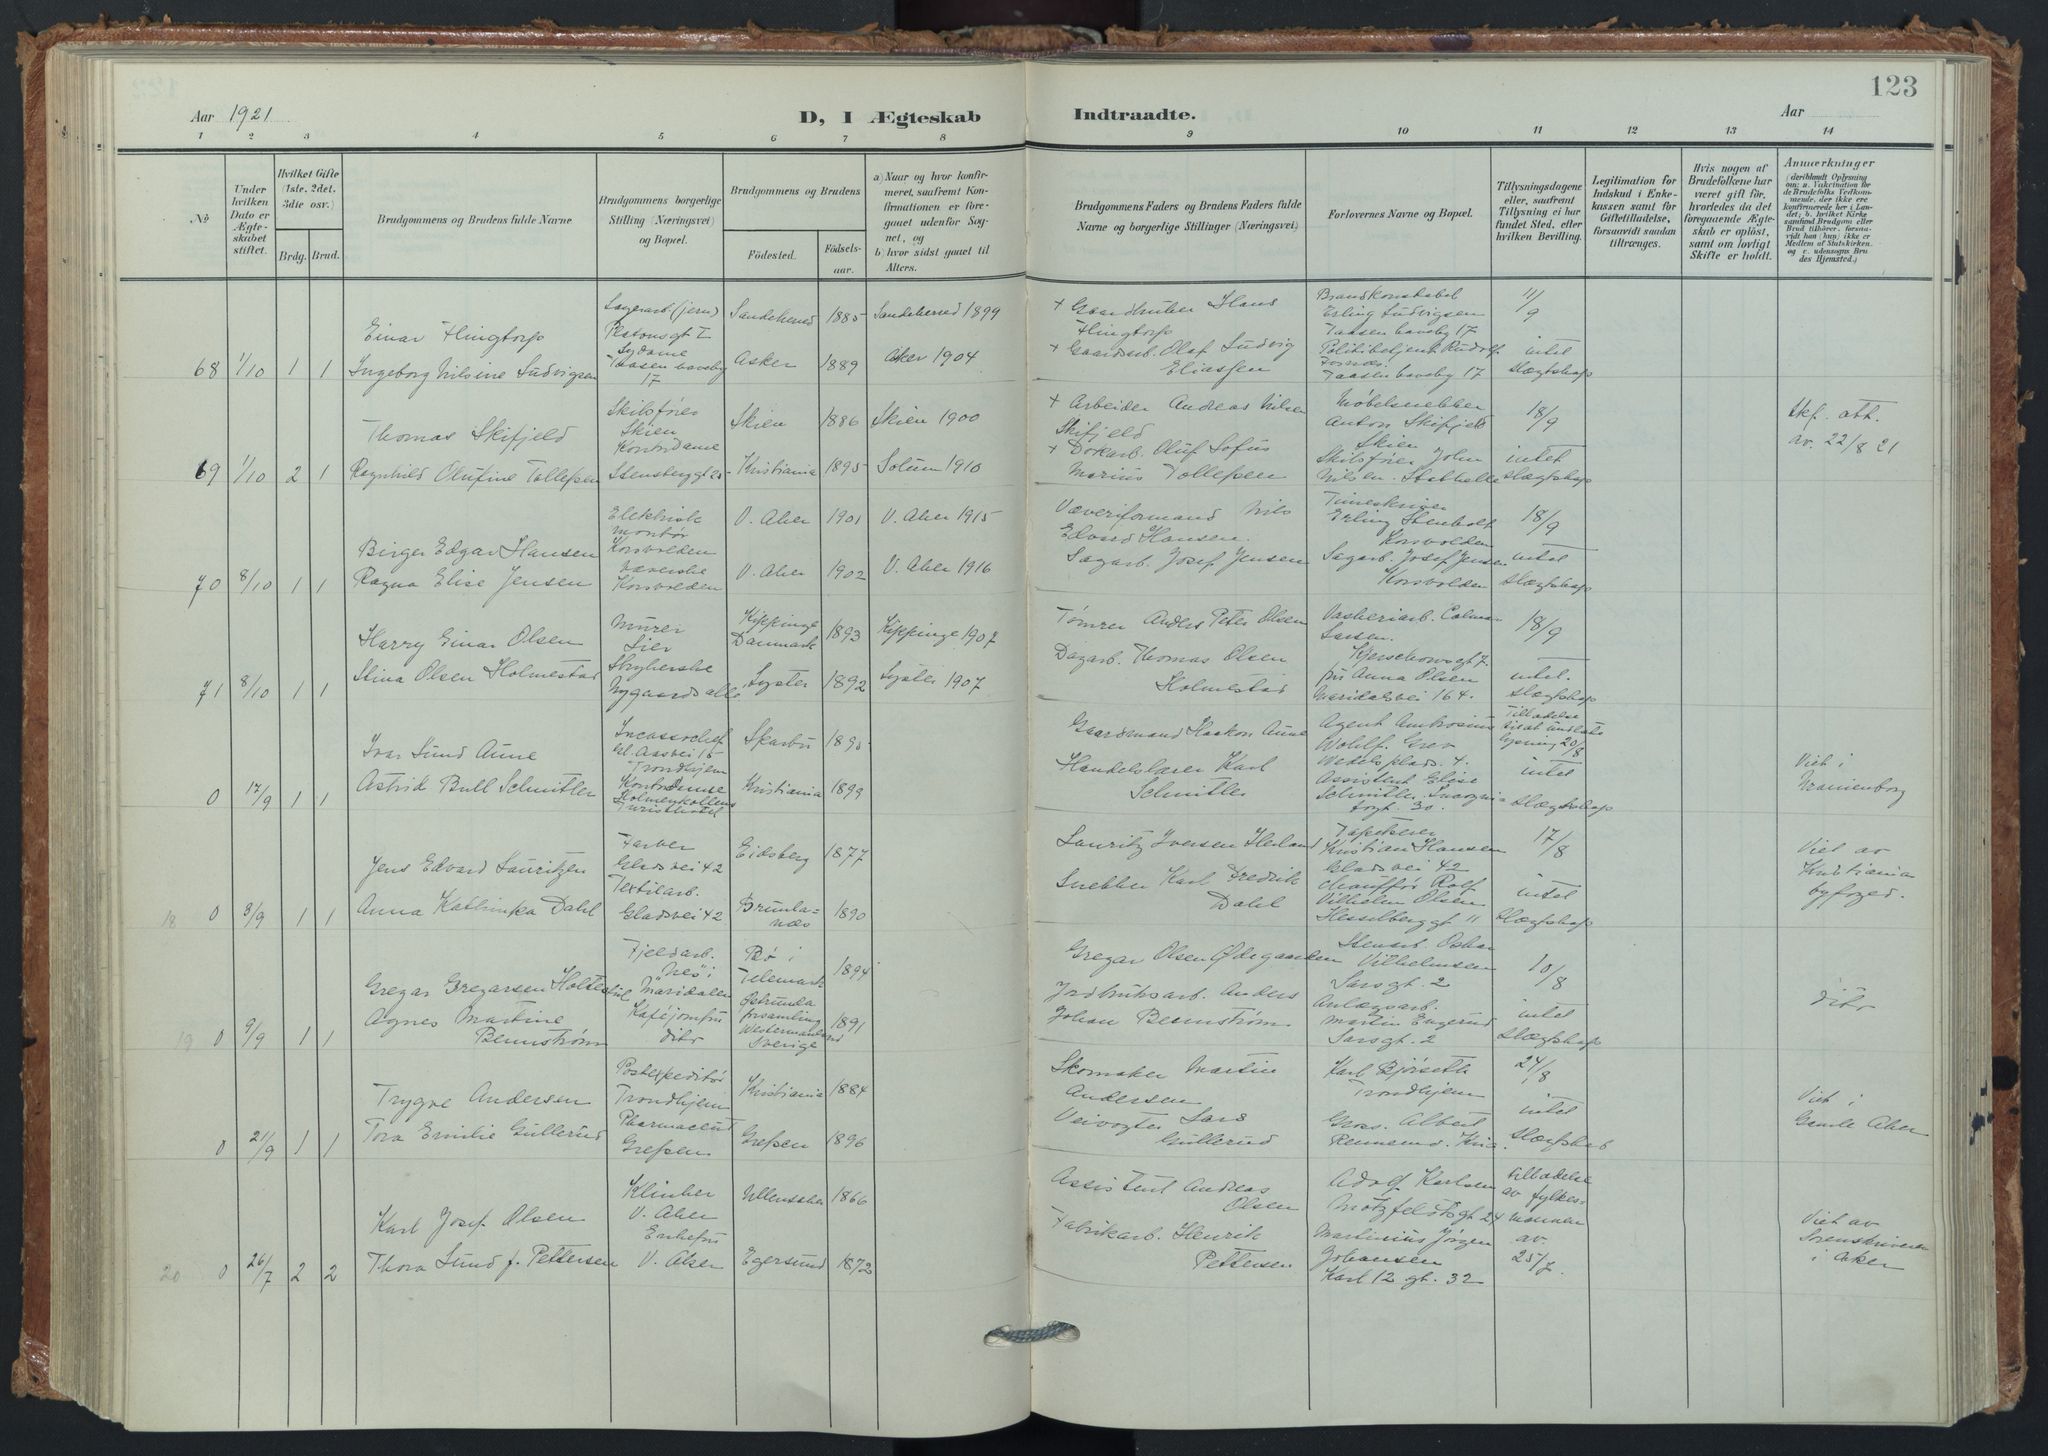 123
Aar 1921
D, I Ægteskab Indtraadte.
Aar
1 2 3 4 5 6 7 8 9 10 11 12 13 14
No
Under hvilken Dato er Ægteskabet stiftet.
Hvilket Gifte (1ste, 2det, 3die osv.)
Brdg. Brud.
Brudgommens og Brudens fulde Navne
Brudgommens borgerlige Stilling (Næringsvei) og Bopæl.
Brudgommens og Brudens
Födested.
Födselsaar.
a) Naar og hvor konfirmeret, saafremt Konfirmationen er foregaaet udenfor Sognet, og
b) hvor sidst gaaet til Alters.
Brudgommens Faders og Brudens Faders fulde Navne og borgerlige Stillinger (Næringsvei)
Forlovernes Navne og Bopæl.
Tillysningsdagene eller, saafremt Tillysning ei har fundet Sted, efter hvilken Bevilling.
Legitimation for Indskud i Enkekassen samt for Giftetilladelse, forsaavidt saadan tiltrænges.
Hvis nogen af Brudefolkene har været gift för, hvorledes da det foregaaende Ægteskab er oplöst, samt om lovligt Skifte er holdt.
Anmærkninger (deriblandt Oplysning om: a. Vakcination for de Brudefolks Vedkommende, der ikke ere konfirmerede her i Landet; b. hvilket Kirkesamfund Brudgom eller Brud tilhörer, forsaavidt han (hun) ikke er Medlem af Statskirken, og c. udensogns Brudes Hjemsted.)
68 1/10 1 1
Einar Flingtorp
Lagerarb. (jern)
Platousgt
Sandeherred 1885 Sandeherred 1899
+ Gaardbruker Hans Flingtorp
Brandkonstabel Erling Ludvigsen
Taasen haveby 17
11/9
Ingeborg Nilsine Ludvigsen
Sydame
Taasen haveby 17
Asker 1889 Aker 1904
+ Gaardsarb. Olaf Ludvig Eliassen
Politibetjent Rudolf
Taasen haveby 17
intet Slægtskap
69 1/10 2 1
Thomas Skifjeld
Skibsfører
Skien
Skien 1886 Skien 1900
+ Arbeider Andreas Nilsen Skifjeld
Møbelsnekker Anton Skifjeld
Skien
18/9
Skf. att. av. 22/8 21
Ragnhild Olufine Tollefsen
Kontordame
Kristiania 1895 Solum 1910
+ Dokarb. Oluf Sofus Marius Tollefsen
Skibsfører John Nilsen. Stathelle
intet Slægtskap
70 8/10 1 1
Birger Edgar Hansen
Elektrisk montør
Korsvolden
V. Aker 1901 V. Aker 1915
Væveriformand Nils Edvard Hansen.
Timeskriver Erling Stenholt
Korsvolden
18/9
Ragna Elise Jensen
Væverske
Korsvolden
V. Aker 1902 V. Aker 1916
Sagarb. Josef Jensen
Sagarb. Josef Jensen
Korsvolden
intet Slægtskap
71 8/10 1 1
Harry Einar Olsen
Murer
Lier
Kippinge Danmark 1893 Kippinge 1907
Tømrer Anders Peter Olsen
Vaskeriarb. Larsen.
Kjerschowsgt 7.
18/9
Stina Olsen Holmestad
Nygaards alle
Lyster 1892 Lyster 1907
Dagarb. Thomas Olsen Holmestad
frk Anna Olsen
Maridalsvei 164.
intet. Slægtskap
0 17/9 1 1
Ivar Sund Aune
Incassochef
Trondhjem
1895
Gaardmand Haakon Aune
Agent Ambrosius Wohlf. Grev Wedels plads. 4.
20/8
Viet i
Astrid Bull Schmitler
Kontordame
Holmenkollens Turisthotel
Kristiania 1899
Handelslærer Karl Schmitler
Assistent Elise Schmitler. Incognitogt. 30.
intet Slægtskap
18 0 3/9 1 1
Jens Edvard Lauritzen
Farver
Gladsvei 42
Eidsberg 1877
Lauritz Iversen
Tapetserer Kristian Hansen
Gladsvei 42
17/8
Viet av Kristiania byfoged.
Anna Kathinka Dahl
Textilarb.
Gladsvei 42
Brunlanæs 1890
Snekker Karl Fredrik Dahl
Chauffør Rolf Vilhelm Olsen
Hesselberggt 11
intet Slægtskap
19 0 9/9 1 1
Gregar Gregarsen
Fjeldarb.
"Nes" i Maridalen
Bø i Telemark 1894
Gregar Olsen Ødegaarden
Stenarb. Oskar Vilhelmsen
Sarsgt. 2
10/8
dito
Agnes Martine Bennstrøm
Kafejomfru
dito
forsamling
Sverige
1891
Jordbruksarb. Anders Johan Bennstrøm
Anlægsarb. Martin Engerud
Sarsgt. 2
intet Slægtskap
0 21/9 1 1
Trygve Andersen
Postexpeditør
Trondhjem
Kristiania 1884
Skomaker Martin Andersen
Karl Bjørseth
Trondhjem
24/8
Viet i Gamle Aker
Tora Emilie Gullerud
Pharmaceut
Grefsen
Grefsen 1896
Veivogter Lars Gullerud
Gros. Albert
intet Slægtskab
20 0 26/7 2 2
Karl Josef Olsen
Klinker
V. Aker
Ullensaker 1866
Assistent Andreas Olsen
Adolf Karlsen
Motzfeldtsgt. 24
tilladelse av fylkesmannen av. 25/7.
Viet av Sorenskriveren i Aker
Thora Lund f. Pettersen
Enkefru
V. Aker
Egersund 1872
Fabrikarb. Henrik Pettersen
Martinius Jørgen Johansen
Karl 12 gt. 32